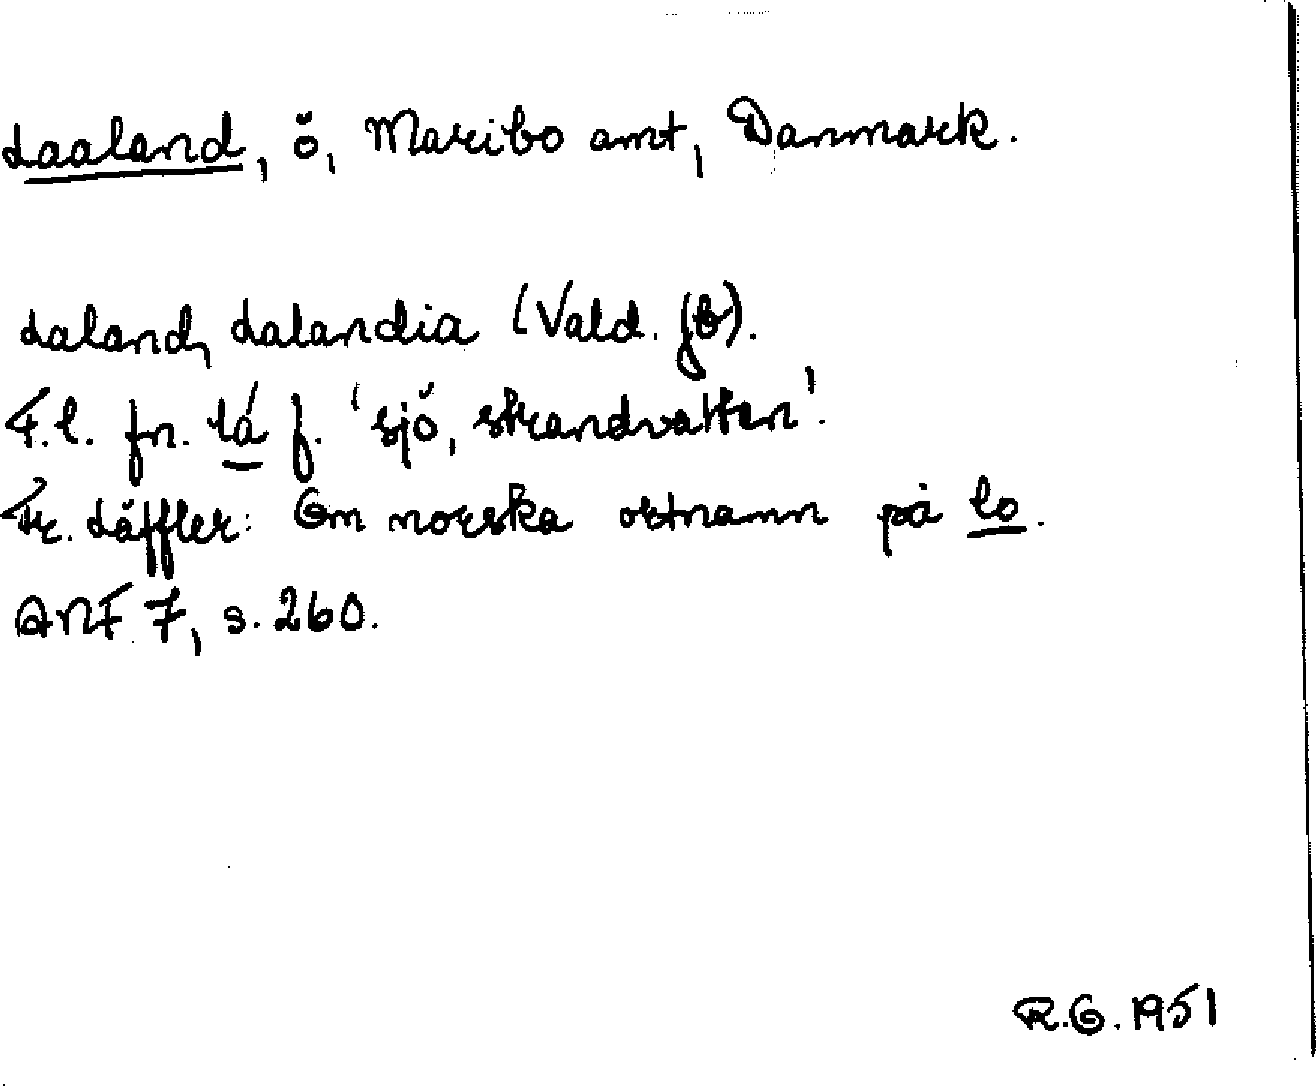 Laaland, ö, Maribo amt, Danmark.
Laland, Lalandia (Vald. Jb).
F.l. fn. lá f. 'sjö, strandvatten'.
Fr. Läffler: Om norska ortnamn på lo.
ANF 7, s. 260.
R.G. 1951